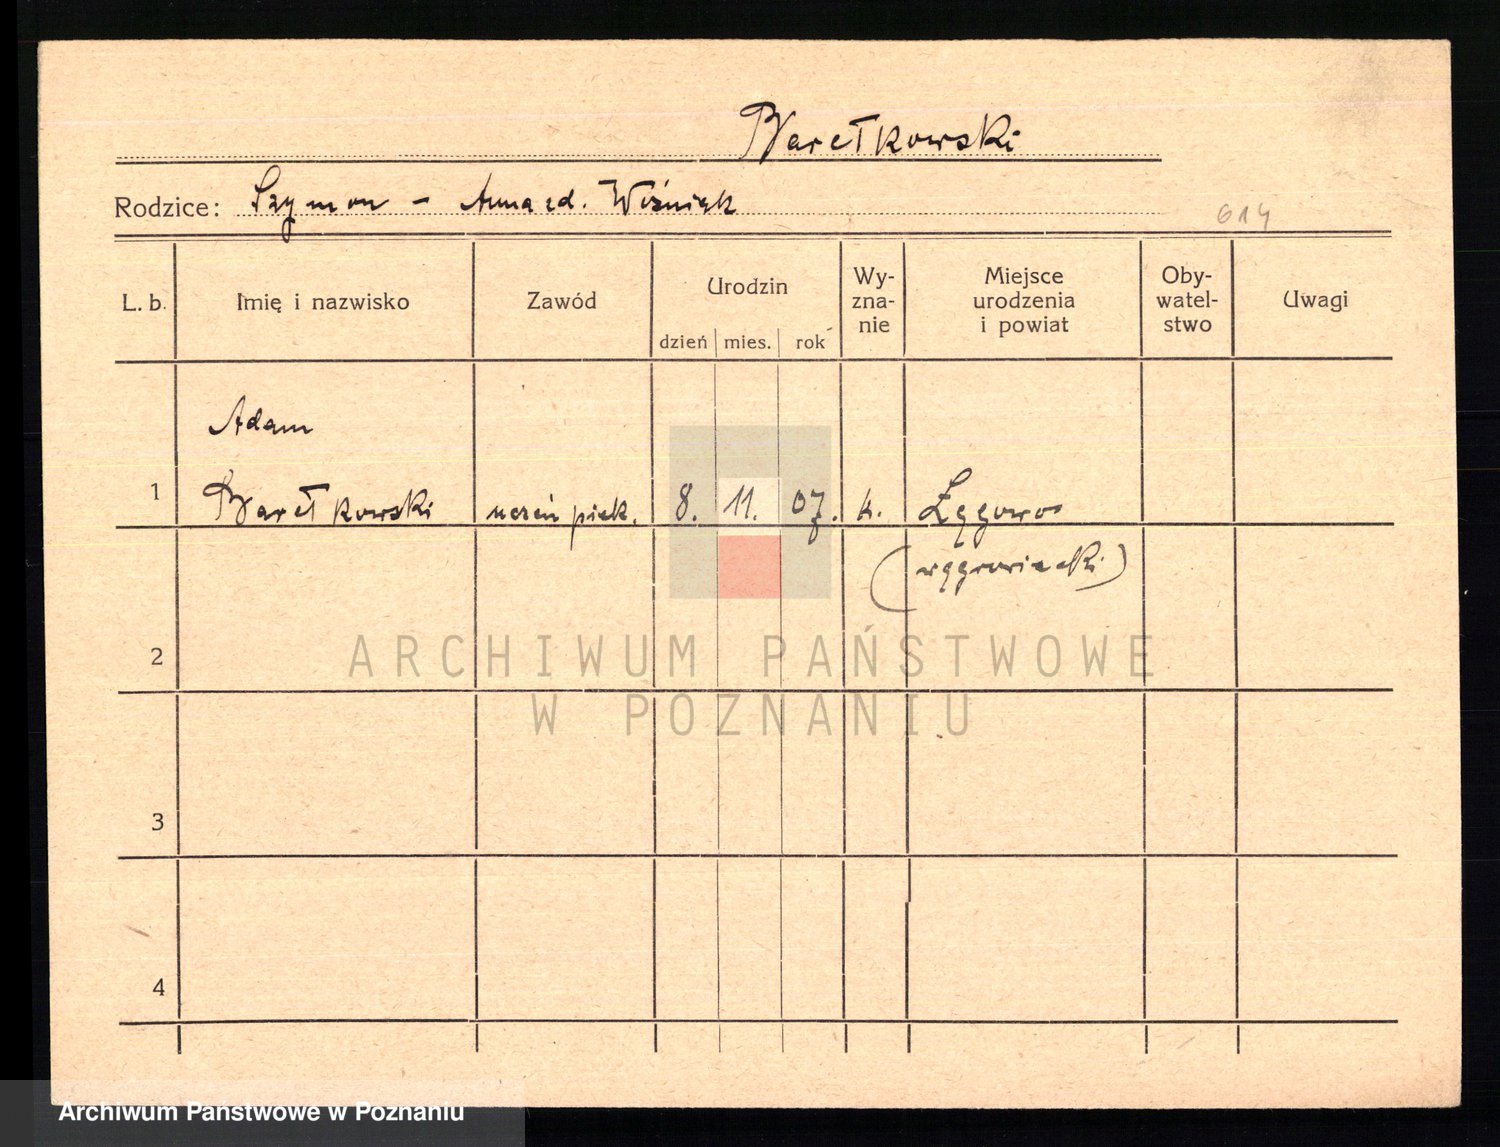 Barełkowski
Rodzice: Szymon – Anna zd. Woźniak
614
L. b. Imię i nazwisko Zawód Urodzin dzień mies. rok Wy-zna-nie Miejsce urodzenia i powiat Oby-watel-stwo Uwagi
Adam
1 Barełkowski uczeń piek. 8. 11. 07. k. Łęgowo
(wągrowiecki)
2
ARCHIWUM PAŃSTWOWE
W POZNANIU
3
4
Archiwum Państwowe w Poznaniu